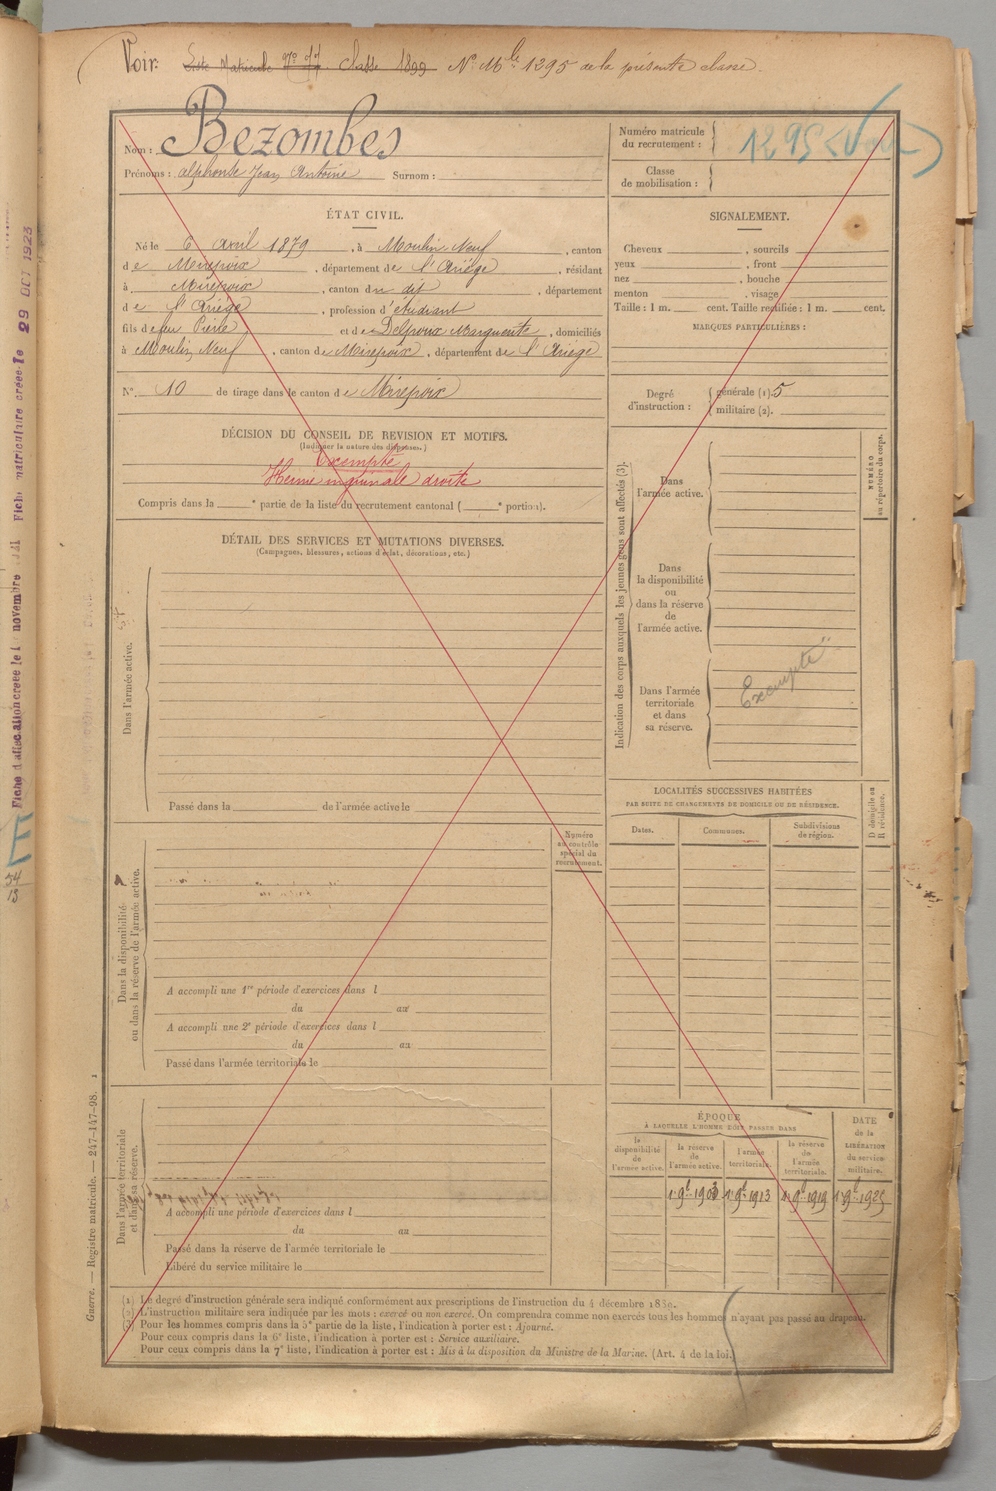 Voir: Liste Matricule N° 77 Classe 1899 N° Mle 1295 de la présente classe.
Nom : Bezombes
Prénoms : alphonse Jean Antoine Surnom :
Numéro matricule du recrutement : 1295 (Voir)
Classe de mobilisation :
ÉTAT CIVIL.
Né le 6 avril 1879, à Moulin Neuf, canton
de Mirepoix, département de l'Ariège, résidant
à Mirepoix, canton du dit, département
de l'Ariège, profession d'étudiant
fils de feu Pierre et de Delpoux Marguerite, domiciliés
à Moulin Neuf, canton de Mirepoix, département de l'Ariège
N° 10 de tirage dans le canton de Mirepoix
SIGNALEMENT.
Cheveux , sourcils
yeux , front
nez , bouche
menton , visage
Taille : 1 m. cent. Taille rectifiée : 1 m. cent.
MARQUES PARTICULIÈRES :
Degré d'instruction : générale (1). 5
militaire (2).
DÉCISION DU CONSEIL DE REVISION ET MOTIFS.
(Indiquer la nature des dispenses.)
Exempté
Hernie inguinale droite
Compris dans la e partie de la liste du recrutement cantonal ( e portion).
DÉTAIL DES SERVICES ET MUTATIONS DIVERSES.
(Campagnes, blessures, actions d'éclat, décorations, etc.)
Dans l'armée active.
Passé dans la de l'armée active le
Indication des corps auxquels les jeunes gens sont affectés (3).
Dans
l'armée active.
Dans
la disponibilité
ou
dans la réserve
de
l'armée active.
Dans l'armée
territoriale
et dans
sa réserve.
Exempté
NUMÉRO
au répertoire du corps.
LOCALITÉS SUCCESSIVES HABITÉES
PAR SUITE DE CHANGEMENTS DE DOMICILE OU DE RÉSIDENCE.
Dates.
Communes.
Subdivisions de région.
D domicile ou
R résidence.
Numéro
au contrôle
spécial du
recrutement.
Dans la disponibilité
ou dans la réserve de l'armée active.
A accompli une 1re période d'exercices dans l
du au
A accompli une 2e période d'exercices dans l
du au
Passé dans l'armée territoriale le
Dans l'armée territoriale
et dans sa réserve.
A accompli une période d'exercices dans l
du au
Passé dans la réserve de l'armée territoriale le
Libéré du service militaire le
ÉPOQUE
À LAQUELLE L'HOMME DOIT PASSER DANS
la disponibilité de l'armée active.
la réserve de l'armée active.
l'armée territoriale.
la réserve de l'armée territoriale.
DATE de la LIBÉRATION du service militaire.
1 9bre 1903
1 9bre 1913
1 9bre 1919
1 9bre 1925
(1) Le degré d'instruction générale sera indiqué conformément aux prescriptions de l'instruction du 4 décembre 1889.
(2) L'instruction militaire sera indiquée par les mots : exercé ou non exercé. On comprendra comme non exercés tous les hommes n'ayant pas passé au drapeau.
(3) Pour les hommes compris dans la 5e partie de la liste, l'indication à porter est : Ajourné.
Pour ceux compris dans la 6e liste, l'indication à porter est : Service auxiliaire.
Pour ceux compris dans la 7e liste, l'indication à porter est : Mis à la disposition du Ministre de la Marine. (Art. 4 de la loi.)
Guerre. — Registre matricule. — 247-147-98. 1
Fiche d'affectation créée le novembre
Fiche matriculaire créée le 29 OCT 1923
34
13